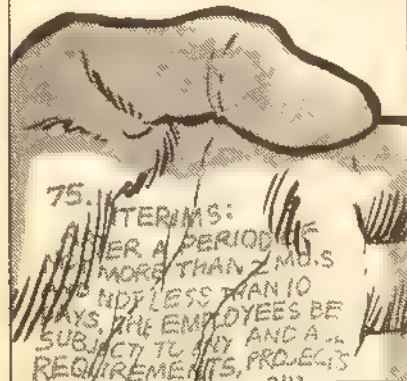 75. TERMS:
A PERIOD
MORE THAN 2 MO.S
NOT LESS THAN 10
DAYS, THE EMPLOYEES BE
SUBJECT TO ANY AND
REQUIREMENTS, PROJECTS